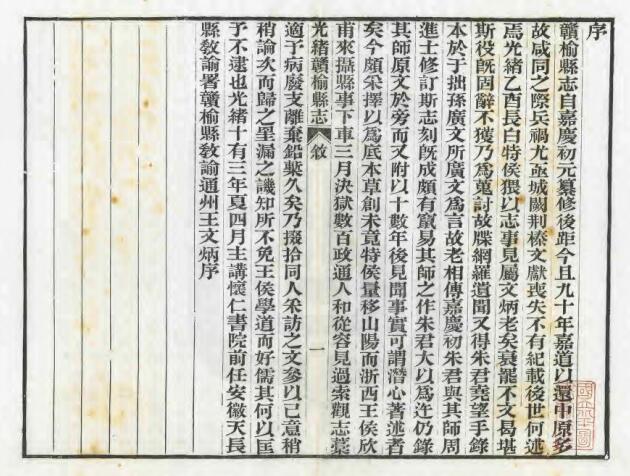 序
贛榆縣志自嘉慶初元纂修後距今且九十年嘉道以還中原多
故咸同之際兵禍尤亟城闕荆榛文獻喪失不有紀載後世何述
焉光緒乙酉長白特侯猥以志事見屬文炳老矣衰罷不文易堪
斯役既固辭不獲乃為蒐討故牒網羅遺聞又得朱君堯望手錄
本於于拙孫廣文所廣文為言故老相傳嘉慶初朱君與其師周
進士修訂斯志刻既成頗有竄易其師之作朱君大以為迕仍錄
其師原文於旁而又附以十數年後見聞事實可謂潛心著述者
矣今頗采擇以為底本草創未竟特侯量移山陽而浙西王侯欣
甫來攝縣事下車三月決獄數百政通人和從容見過索觀志藁
光緒贛榆縣志 敘 一
適于病廢支離棄鉛槧久矣乃掇拾同人采訪之文參以己意稍
稍論次而歸之罣漏之譏知所不免王侯學道而好儒其何以匡
予不逮也光緒十有三年夏四月主講懷仁書院前任安徽天長
縣教諭署贛榆縣教諭通州王文炳序